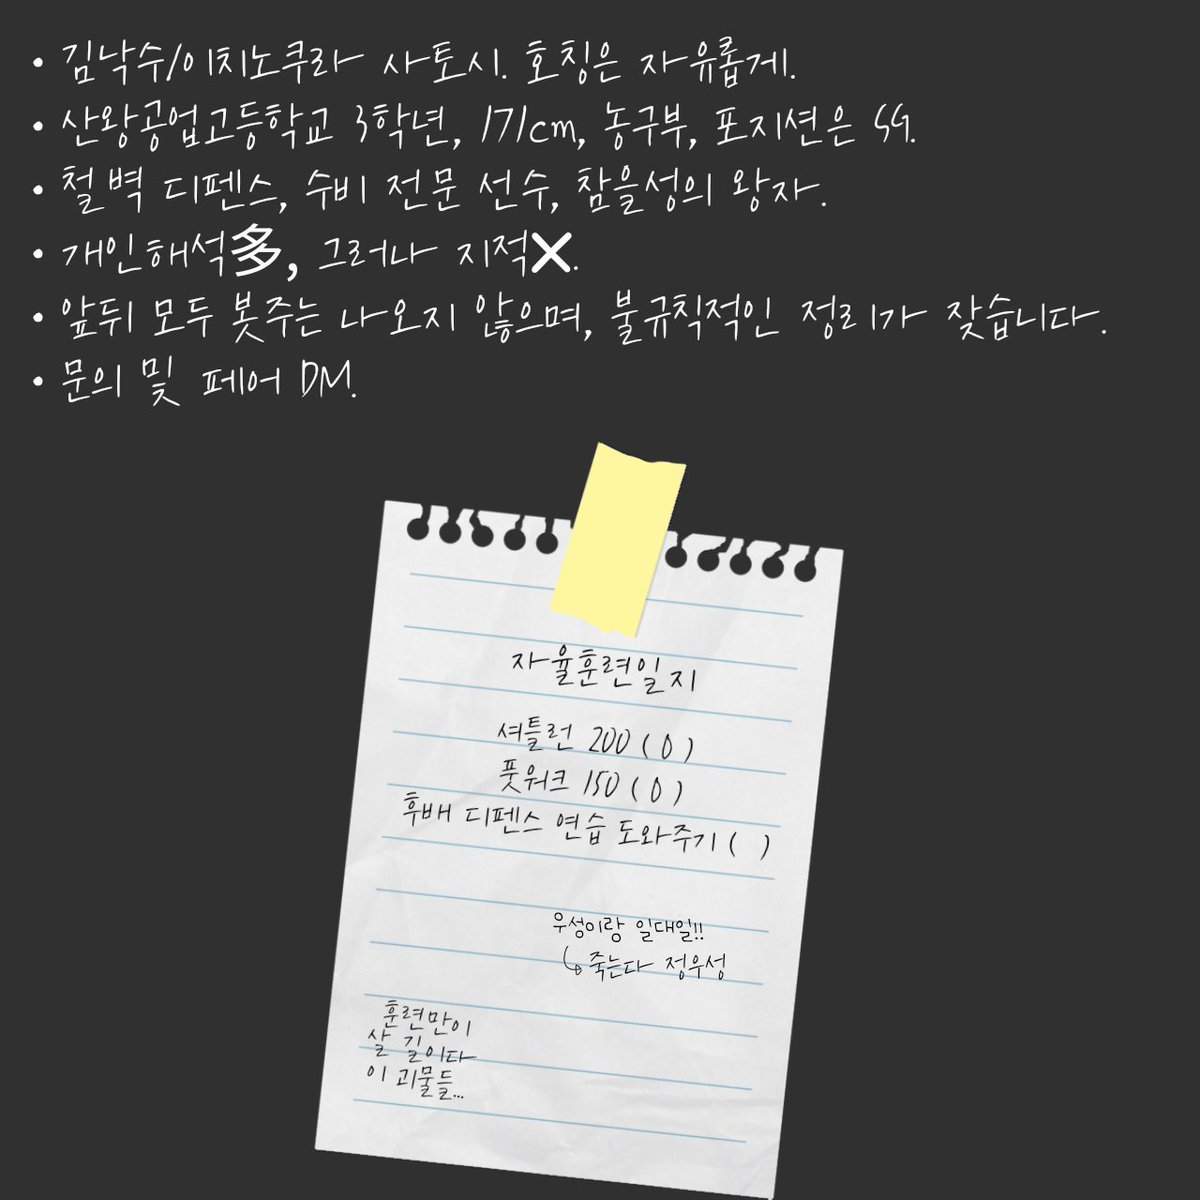 • 김낙수/이치노쿠라 사토시. 호칭은 자유롭게.
• 산왕공업고등학교 3학년, 171cm, 농구부, 포지션은 SG.
• 철벽 디펜스, 수비 전문 선수, 참을성의 왕자.
• 개인해석多, 그러나 지적X.
• 앞뒤 모두 봇주는 나오지 않으며, 불규칙적인 정리가 잦습니다.
• 문의 및 페어 DM.
자율훈련일지
셔틀런 200 ( O )
풋워크 150 ( O )
후배 디펜스 연습 도와주기 ( )
우성이랑 일대일!!
↳ 죽는다 정우성
훈련만이
살 길이다
이 괴물들...